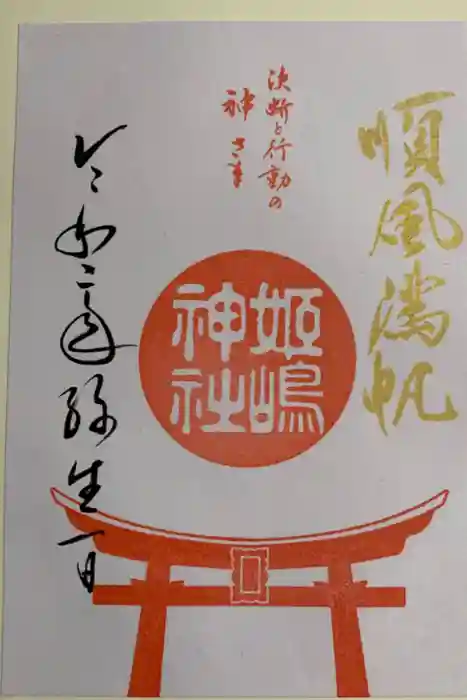 順風満帆
決断と行動の
神さま
姫嶋
神社
令和二年弥生一日